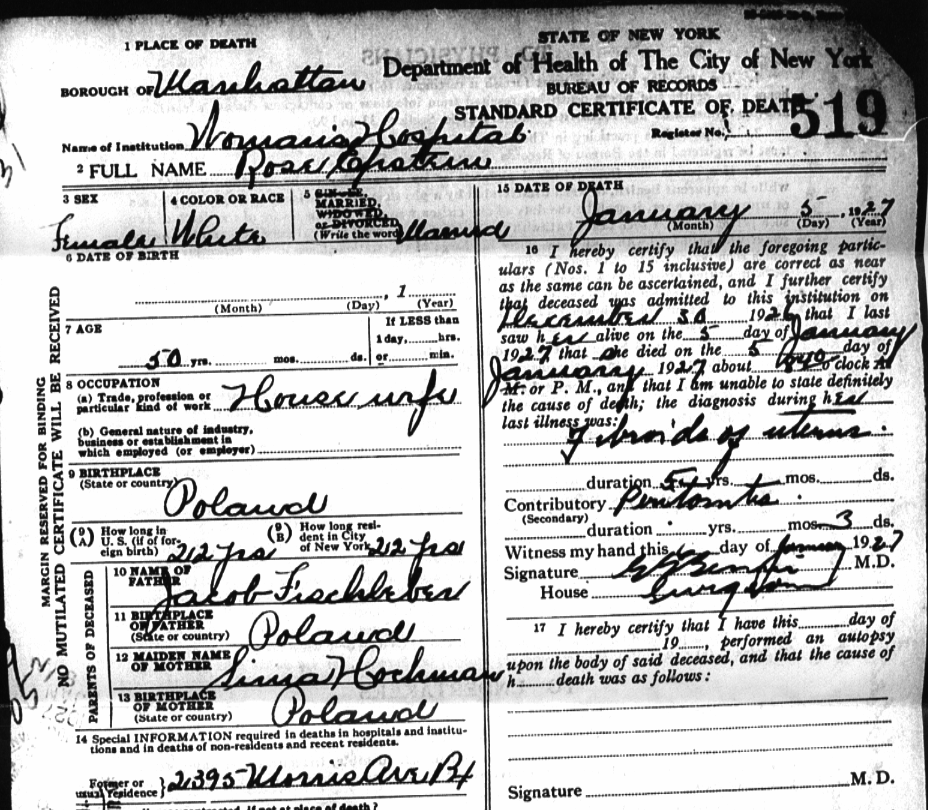 STATE OF NEW YORK
Department of Health of The City of New York
BUREAU OF RECORDS
STANDARD CERTIFICATE OF DEATH
Register No. 519
1 PLACE OF DEATH
BOROUGH OF Manhattan
Name of Institution Woman's Hospital
2 FULL NAME Rose Epstein
3 SEX
Female
4 COLOR OR RACE
White
5 SINGLE,
MARRIED,
WIDOWED,
OR DIVORCED
(Write the word) Married
6 DATE OF BIRTH
, 1
(Month) (Day) (Year)
7 AGE
50 yrs. mos. ds.
If LESS than
1 day, hrs.
or min.
8 OCCUPATION
(a) Trade, profession or
particular kind of work House wife
(b) General nature of industry,
business or establishment in
which employed (or employer)
9 BIRTHPLACE
(State or country)
Poland
(9 A) How long in
U. S. (if of for-
eign birth) 22 yrs
(9 B) How long resi-
dent in City
of New York 22 yrs
PARENTS OF DECEASED
10 NAME OF
FATHER
Jacob Fischleber
11 BIRTHPLACE
OF FATHER
(State or country) Poland
12 MAIDEN NAME
OF MOTHER Sima Hochman
13 BIRTHPLACE
OF MOTHER
(State or country) Poland
14 Special INFORMATION required in deaths in hospitals and institu-
tions and in deaths of non-residents and recent residents.
Former or
usual residence } 2395 Morris Ave Bx
MARGIN RESERVED FOR BINDING
NO MUTILATED CERTIFICATE WILL BE RECEIVED
15 DATE OF DEATH
January 5, 1927
(Month) (Day) (Year)
16 I hereby certify that the foregoing partic-
ulars (Nos. 1 to 15 inclusive) are correct as near
as the same can be ascertained, and I further certify
that deceased was admitted to this institution on
December 30 1926 that I last
saw her alive on the 5 day of January
1927 that she died on the 5 day of
January 1927 about o'clock A.
M. or P. M., and that I am unable to state definitely
the cause of death; the diagnosis during her
last illness was:
Fibroids of uterus.
duration yrs. mos. ds.
Contributory
(Secondary)
duration yrs. mos. 3 ds.
Witness my hand this day of January 1927
Signature M.D.
House Surgeon
17 I hereby certify that I have this day of
19 , performed an autopsy
upon the body of said deceased, and that the cause of
h death was as follows:
Signature M. D.